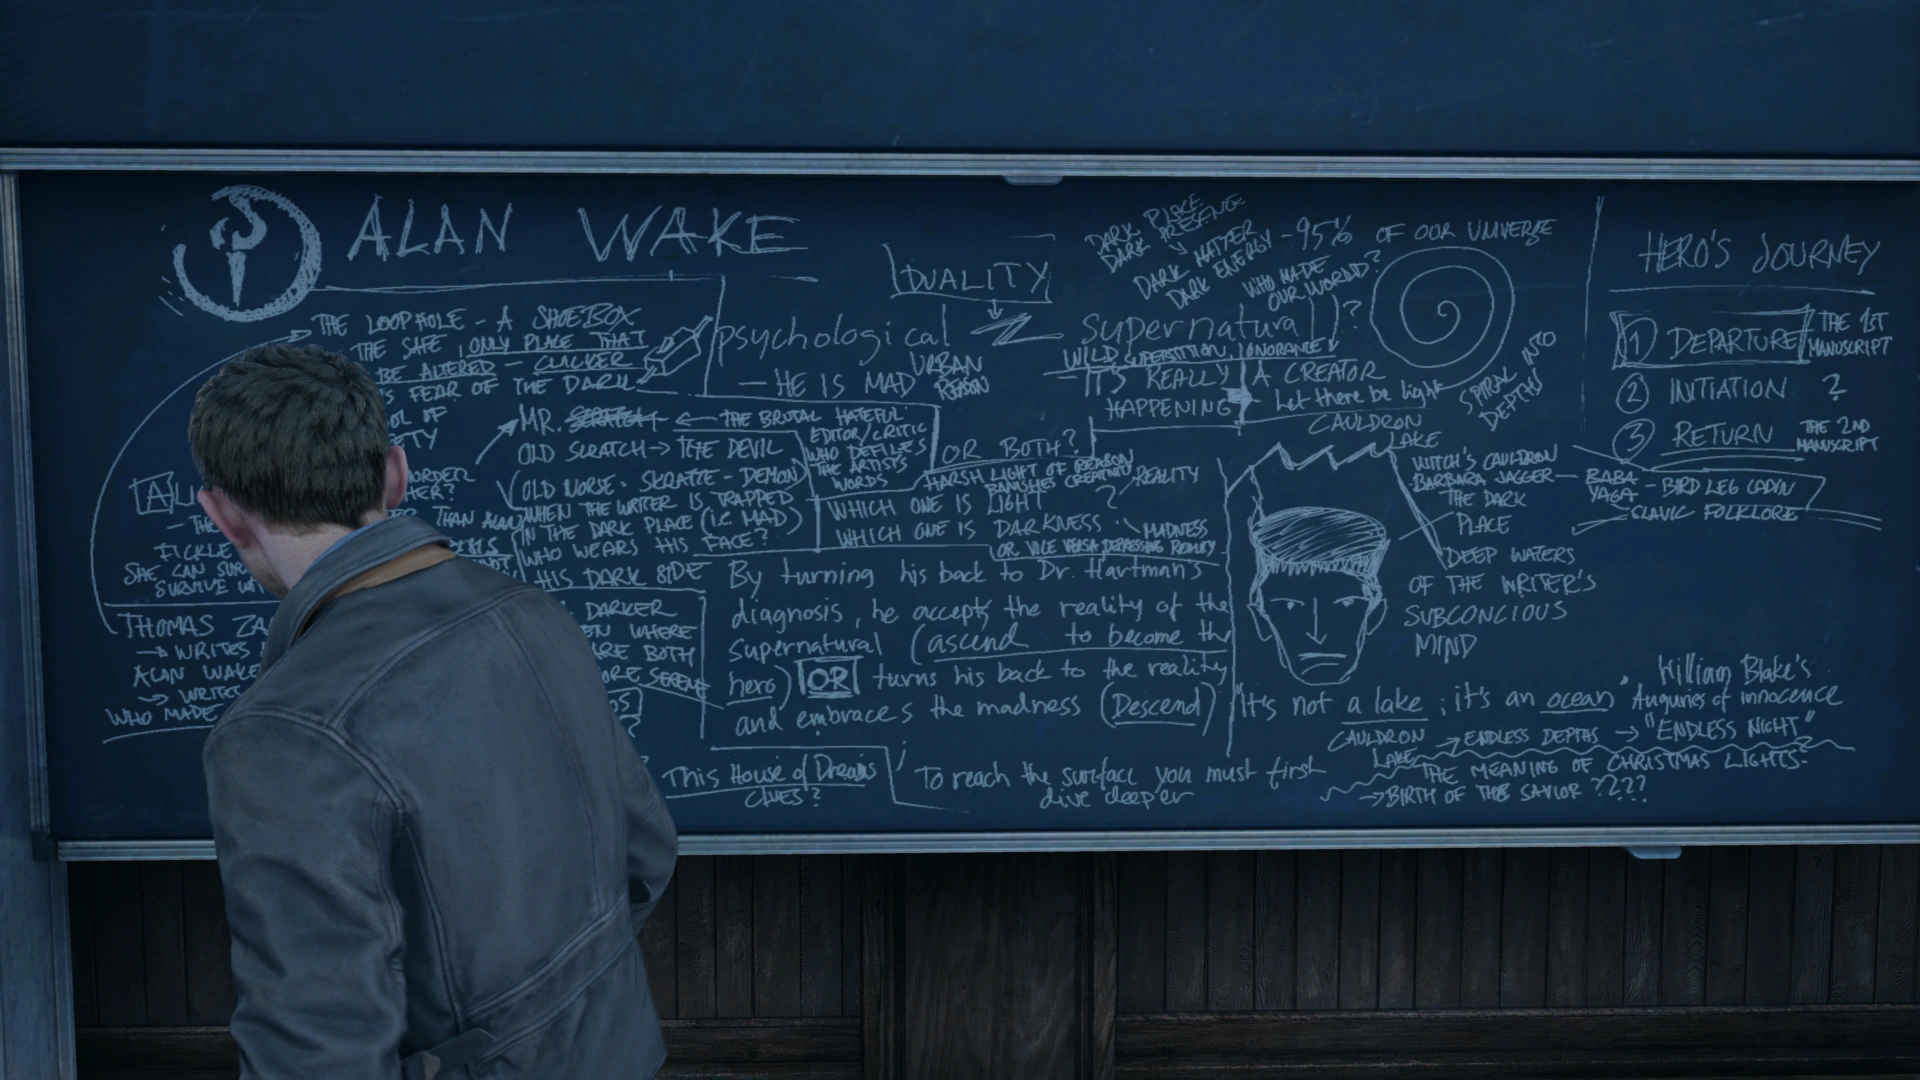 ALAN WAKE
THE LOOPHOLE - A SHOEBOX
THE SAFE ONLY PLACE THAT
BE ALTERED - CLICKER
FEAR OF THE DARK
OL OF
ETY
MR. SCRATCH ← THE BRUTAL HATEFUL
EDITOR/CRITIC
WHO DEFILES
THE ARTISTS
WORDS
OLD SCRATCH → THE DEVIL
OLD NORSE - SKRATTE - DEMON
WHEN THE WRITER IS TRAPPED
IN THE DARK PLACE (I.E. MAD)
WHO WEARS HIS FACE?
THAN ALAN
HIS DARK SIDE
DARKER
WHERE
ARE BOTH
ORE SERENE
FICKLE
SHE CAN SUR
SURVIVE
THOMAS ZA
→ WRITES
ALAN WAKE
→ WRITES
WHO MADE
DUALITY
psychological
- HE IS MAD
URBAN
REASON
DARK PLACE
DARK PRESENCE
DARK MATTER
DARK ENERGY - 95% OF OUR UNIVERSE
WHO MADE
OUR WORLD?
supernatural ?
WILD SUPERSTITION, IGNORANCE
- IT'S REALLY
HAPPENING
A CREATOR
Let there be light
SPIRAL INTO
DEPTHS
OR BOTH?
HARSH LIGHT OF REASON
BANISHES CREATING
WHICH ONE IS LIGHT ? REALITY
WHICH ONE IS DARKNESS MADNESS
OR VICE VERSA DEPRESSING REALITY
By turning his back to Dr. Hartman's
diagnosis, he accepts the reality of the
supernatural (ascend to become the
hero) OR turns his back to the reality
and embraces the madness (Descend)
This House of Dreams
CLUES?
To reach the surface you must first
dive deeper
CAULDRON
LAKE
WITCH'S CAULDRON
BARBARA JAGGER
THE DARK
PLACE
BABA
YAGA
- BIRD LEG CABIN
- SLAVIC FOLKLORE
DEEP WATERS
OF THE WRITER'S
SUBCONCIOUS
MIND
"It's not a lake; it's an ocean"
William Blake's
Auguries of innocence
CAULDRON
LAKE → ENDLESS DEPTHS → "ENDLESS NIGHT"
THE MEANING OF CHRISTMAS LIGHTS?
→ BIRTH OF THE SAVIOR ????
HERO'S JOURNEY
1 DEPARTURE THE 1ST
MANUSCRIPT
2 INITIATION ?
3 RETURN THE 2ND
MANUSCRIPT